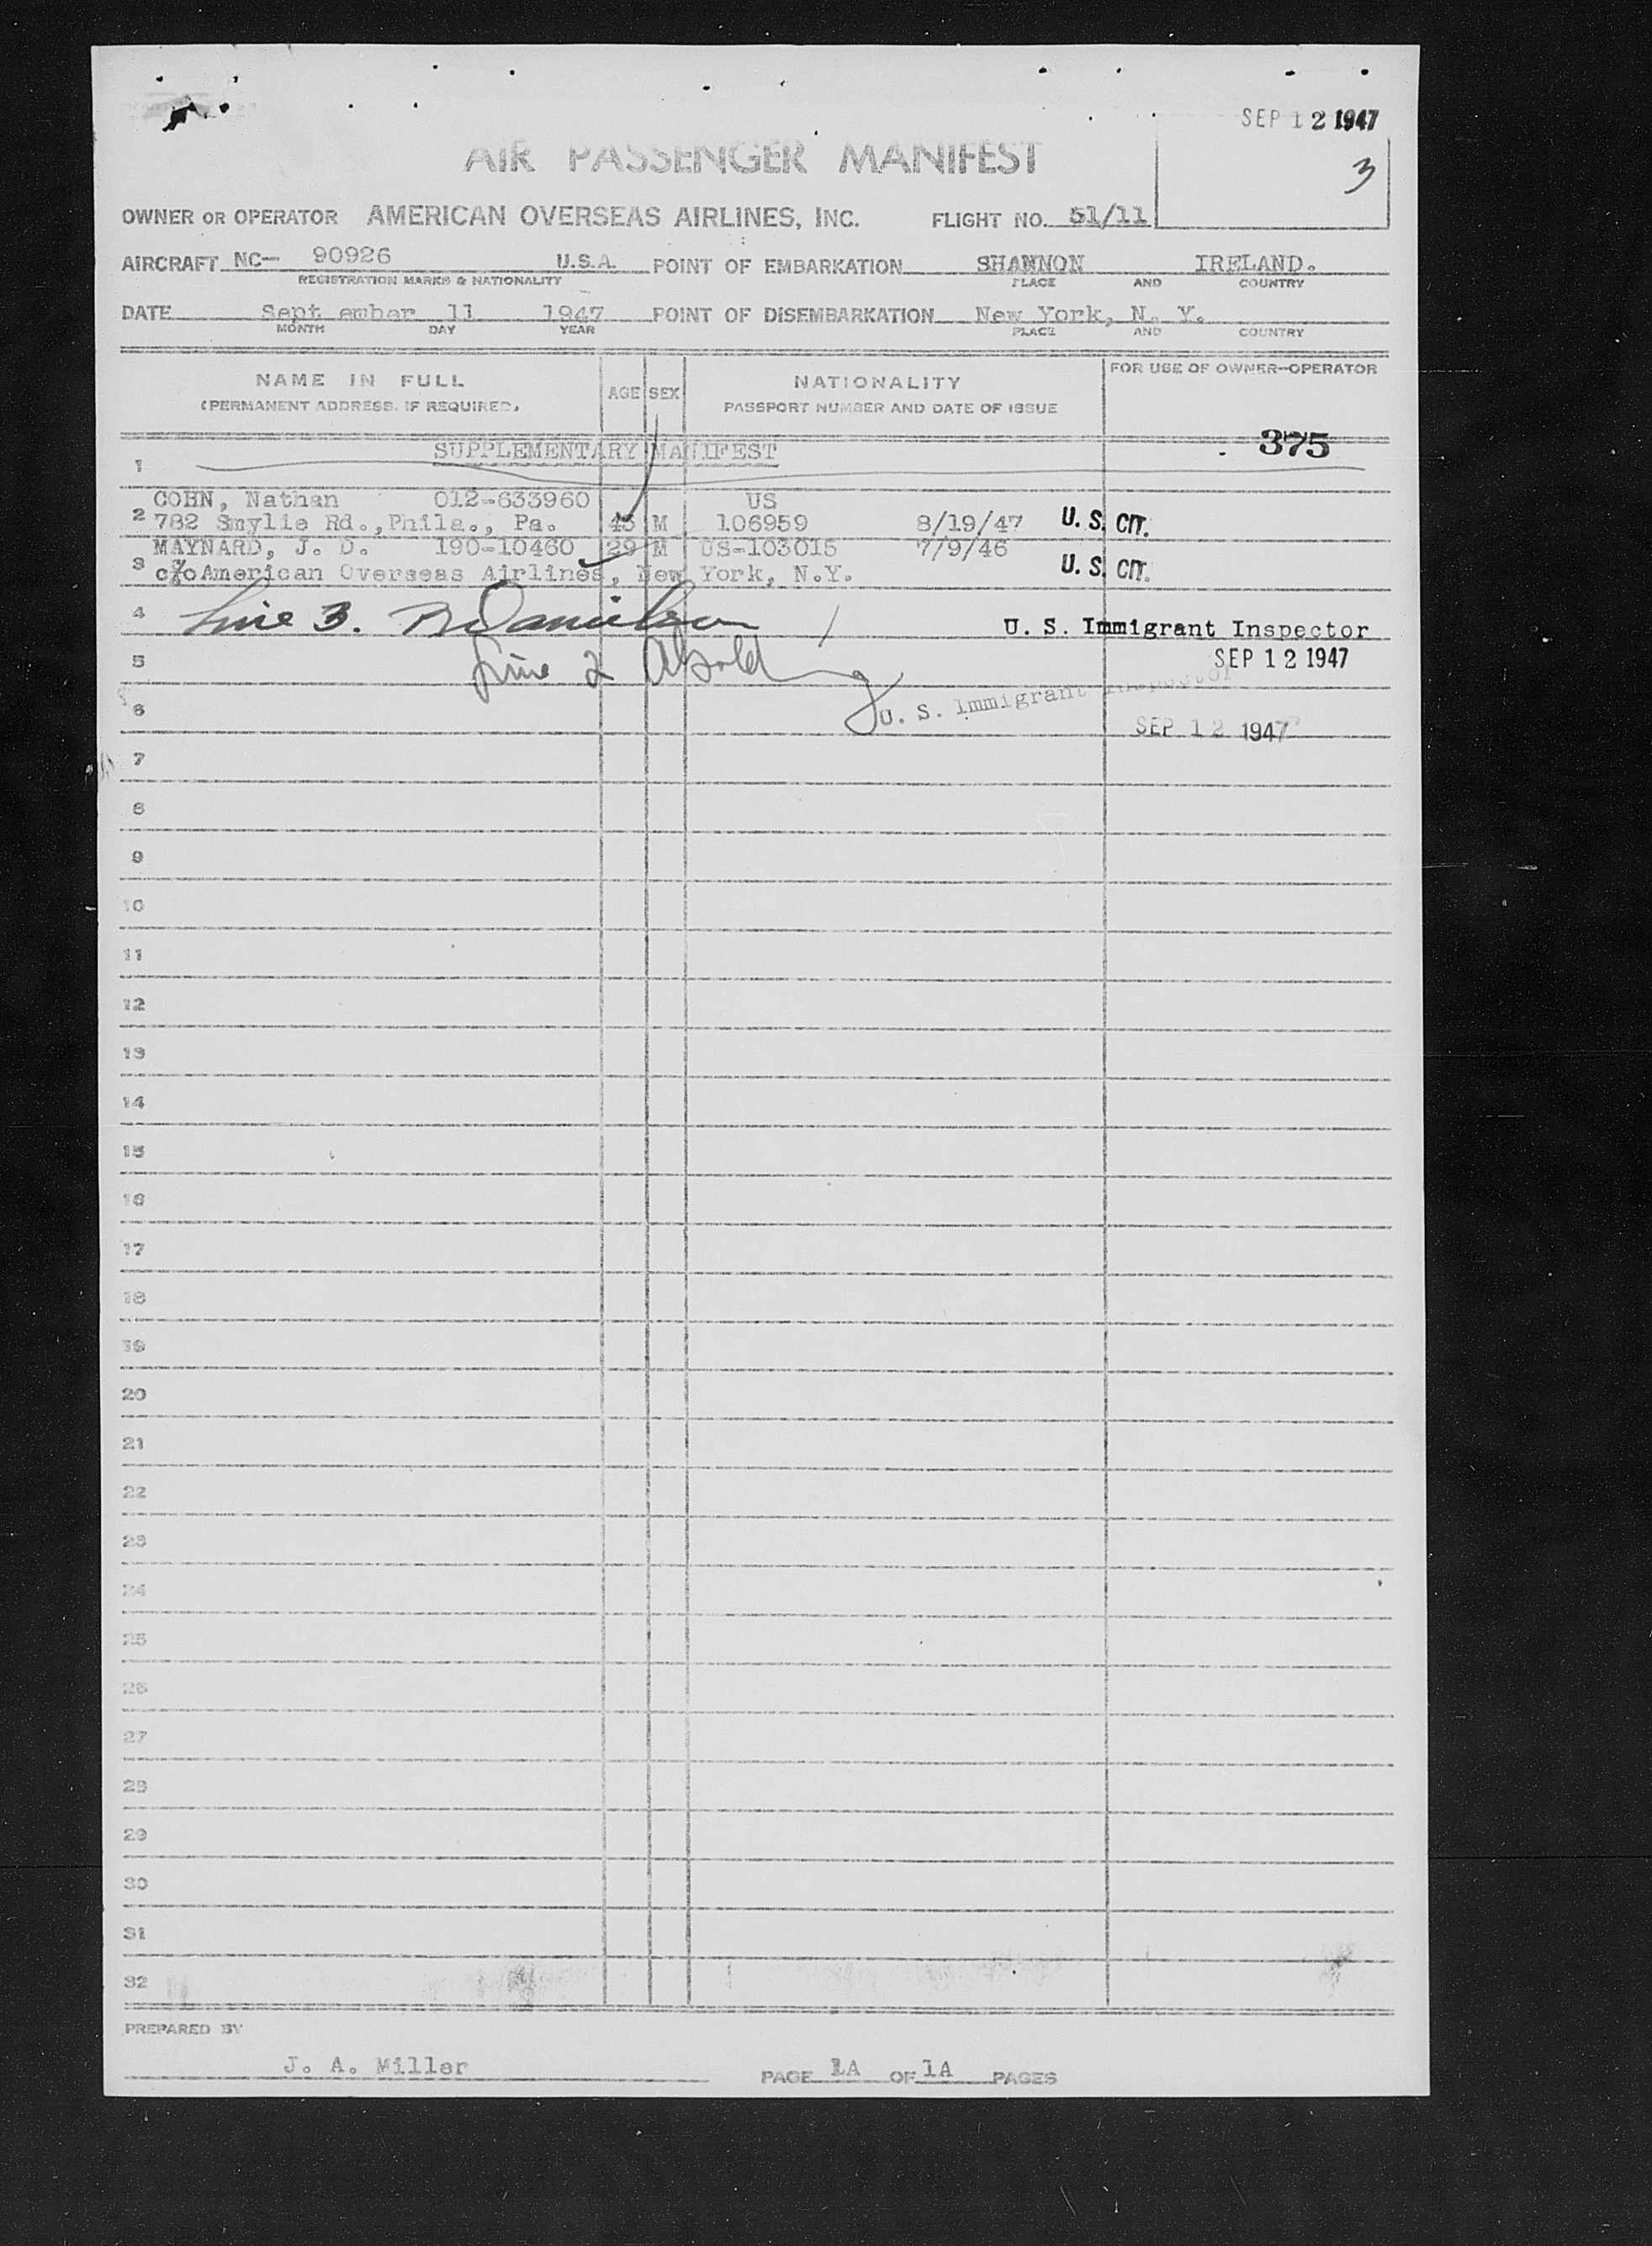 SEP 12 1947
3
AIR PASSENGER MANIFEST
OWNER OR OPERATOR AMERICAN OVERSEAS AIRLINES, INC. FLIGHT NO. 51/11
AIRCRAFT NC- 90926 U.S.A. POINT OF EMBARKATION SHANNON IRELAND.
REGISTRATION MARKS & NATIONALITY PLACE AND COUNTRY
DATE Sept ember 11 1947 POINT OF DISEMBARKATION New York, N. Y.
MONTH DAY YEAR PLACE AND COUNTRY
NAME IN FULL AGE SEX NATIONALITY FOR USE OF OWNER-OPERATOR
(PERMANENT ADDRESS, IF REQUIRED) PASSPORT NUMBER AND DATE OF ISSUE
375
1 SUPPLEMENTARY MANIFEST
COHN, Nathan 012-633960 US
2 782 Smylie Rd., Phila., Pa. 43 M 106959 8/19/47 U. S. CIT.
MAYNARD, J. D. 190-10460 29 M US-103015 7/9/46
3 c/o American Overseas Airlines, New York, N.Y. U. S. CIT.
4 Line 3. U. S. Immigrant Inspector
5 Line 2 SEP 12 1947
6 U. S. Immigrant Inspector
SEP 12 1947
7
8
9
10
11
12
13
14
15
16
17
18
19
20
21
22
23
24
25
26
27
28
29
30
31
32
PREPARED BY
J. A. Miller PAGE 1A OF 1A PAGES